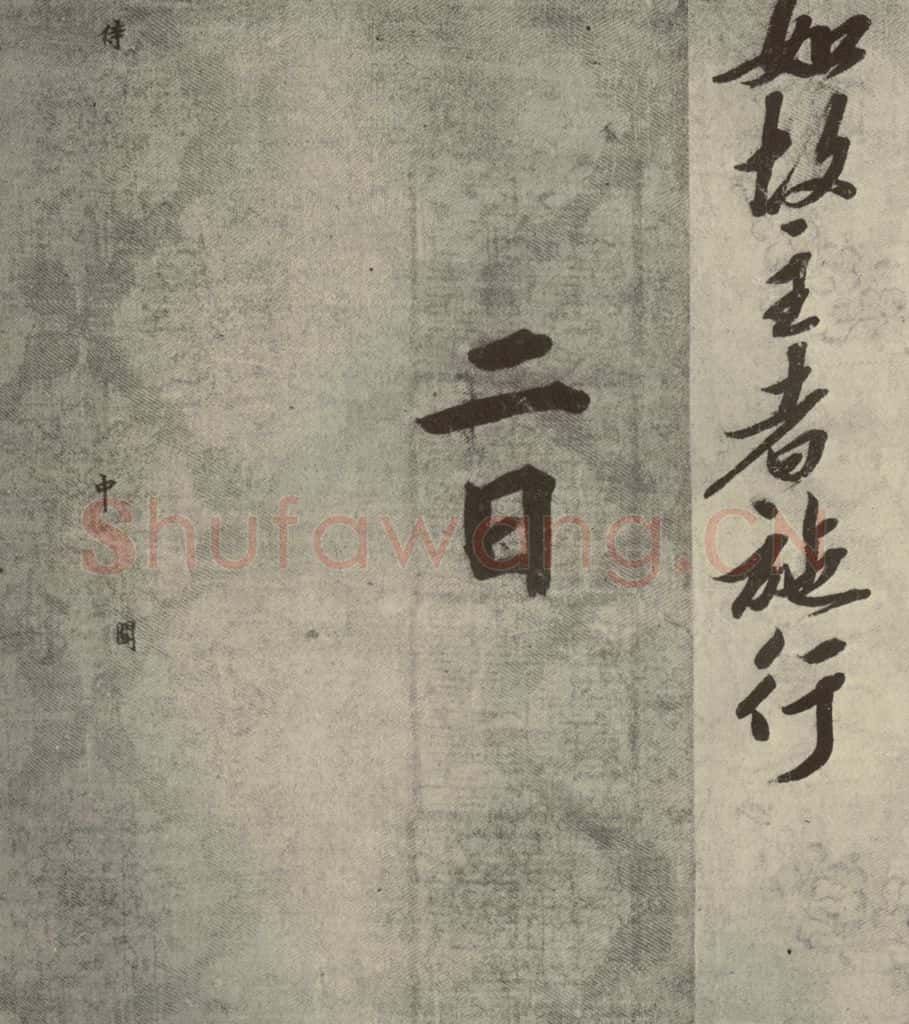 如故主者施行
二日
侍中闕
Shufawang.CN